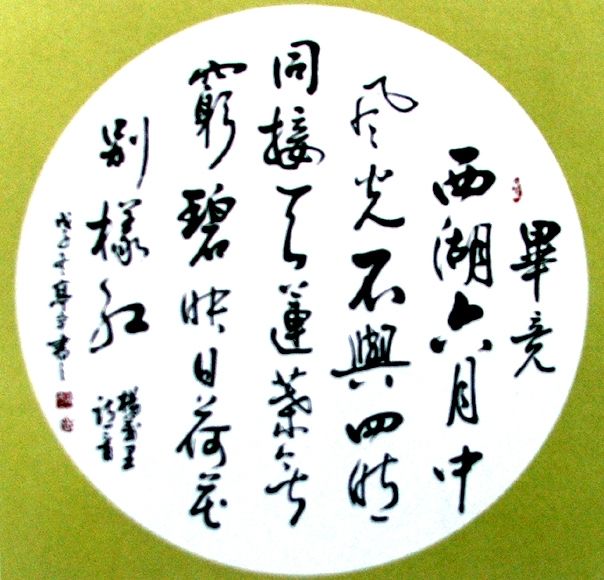 畢竟
西湖六月中
風光不與四時
同接天蓮葉無
窮碧映日荷花
別樣紅
楊萬里
詩一首
戊子 書